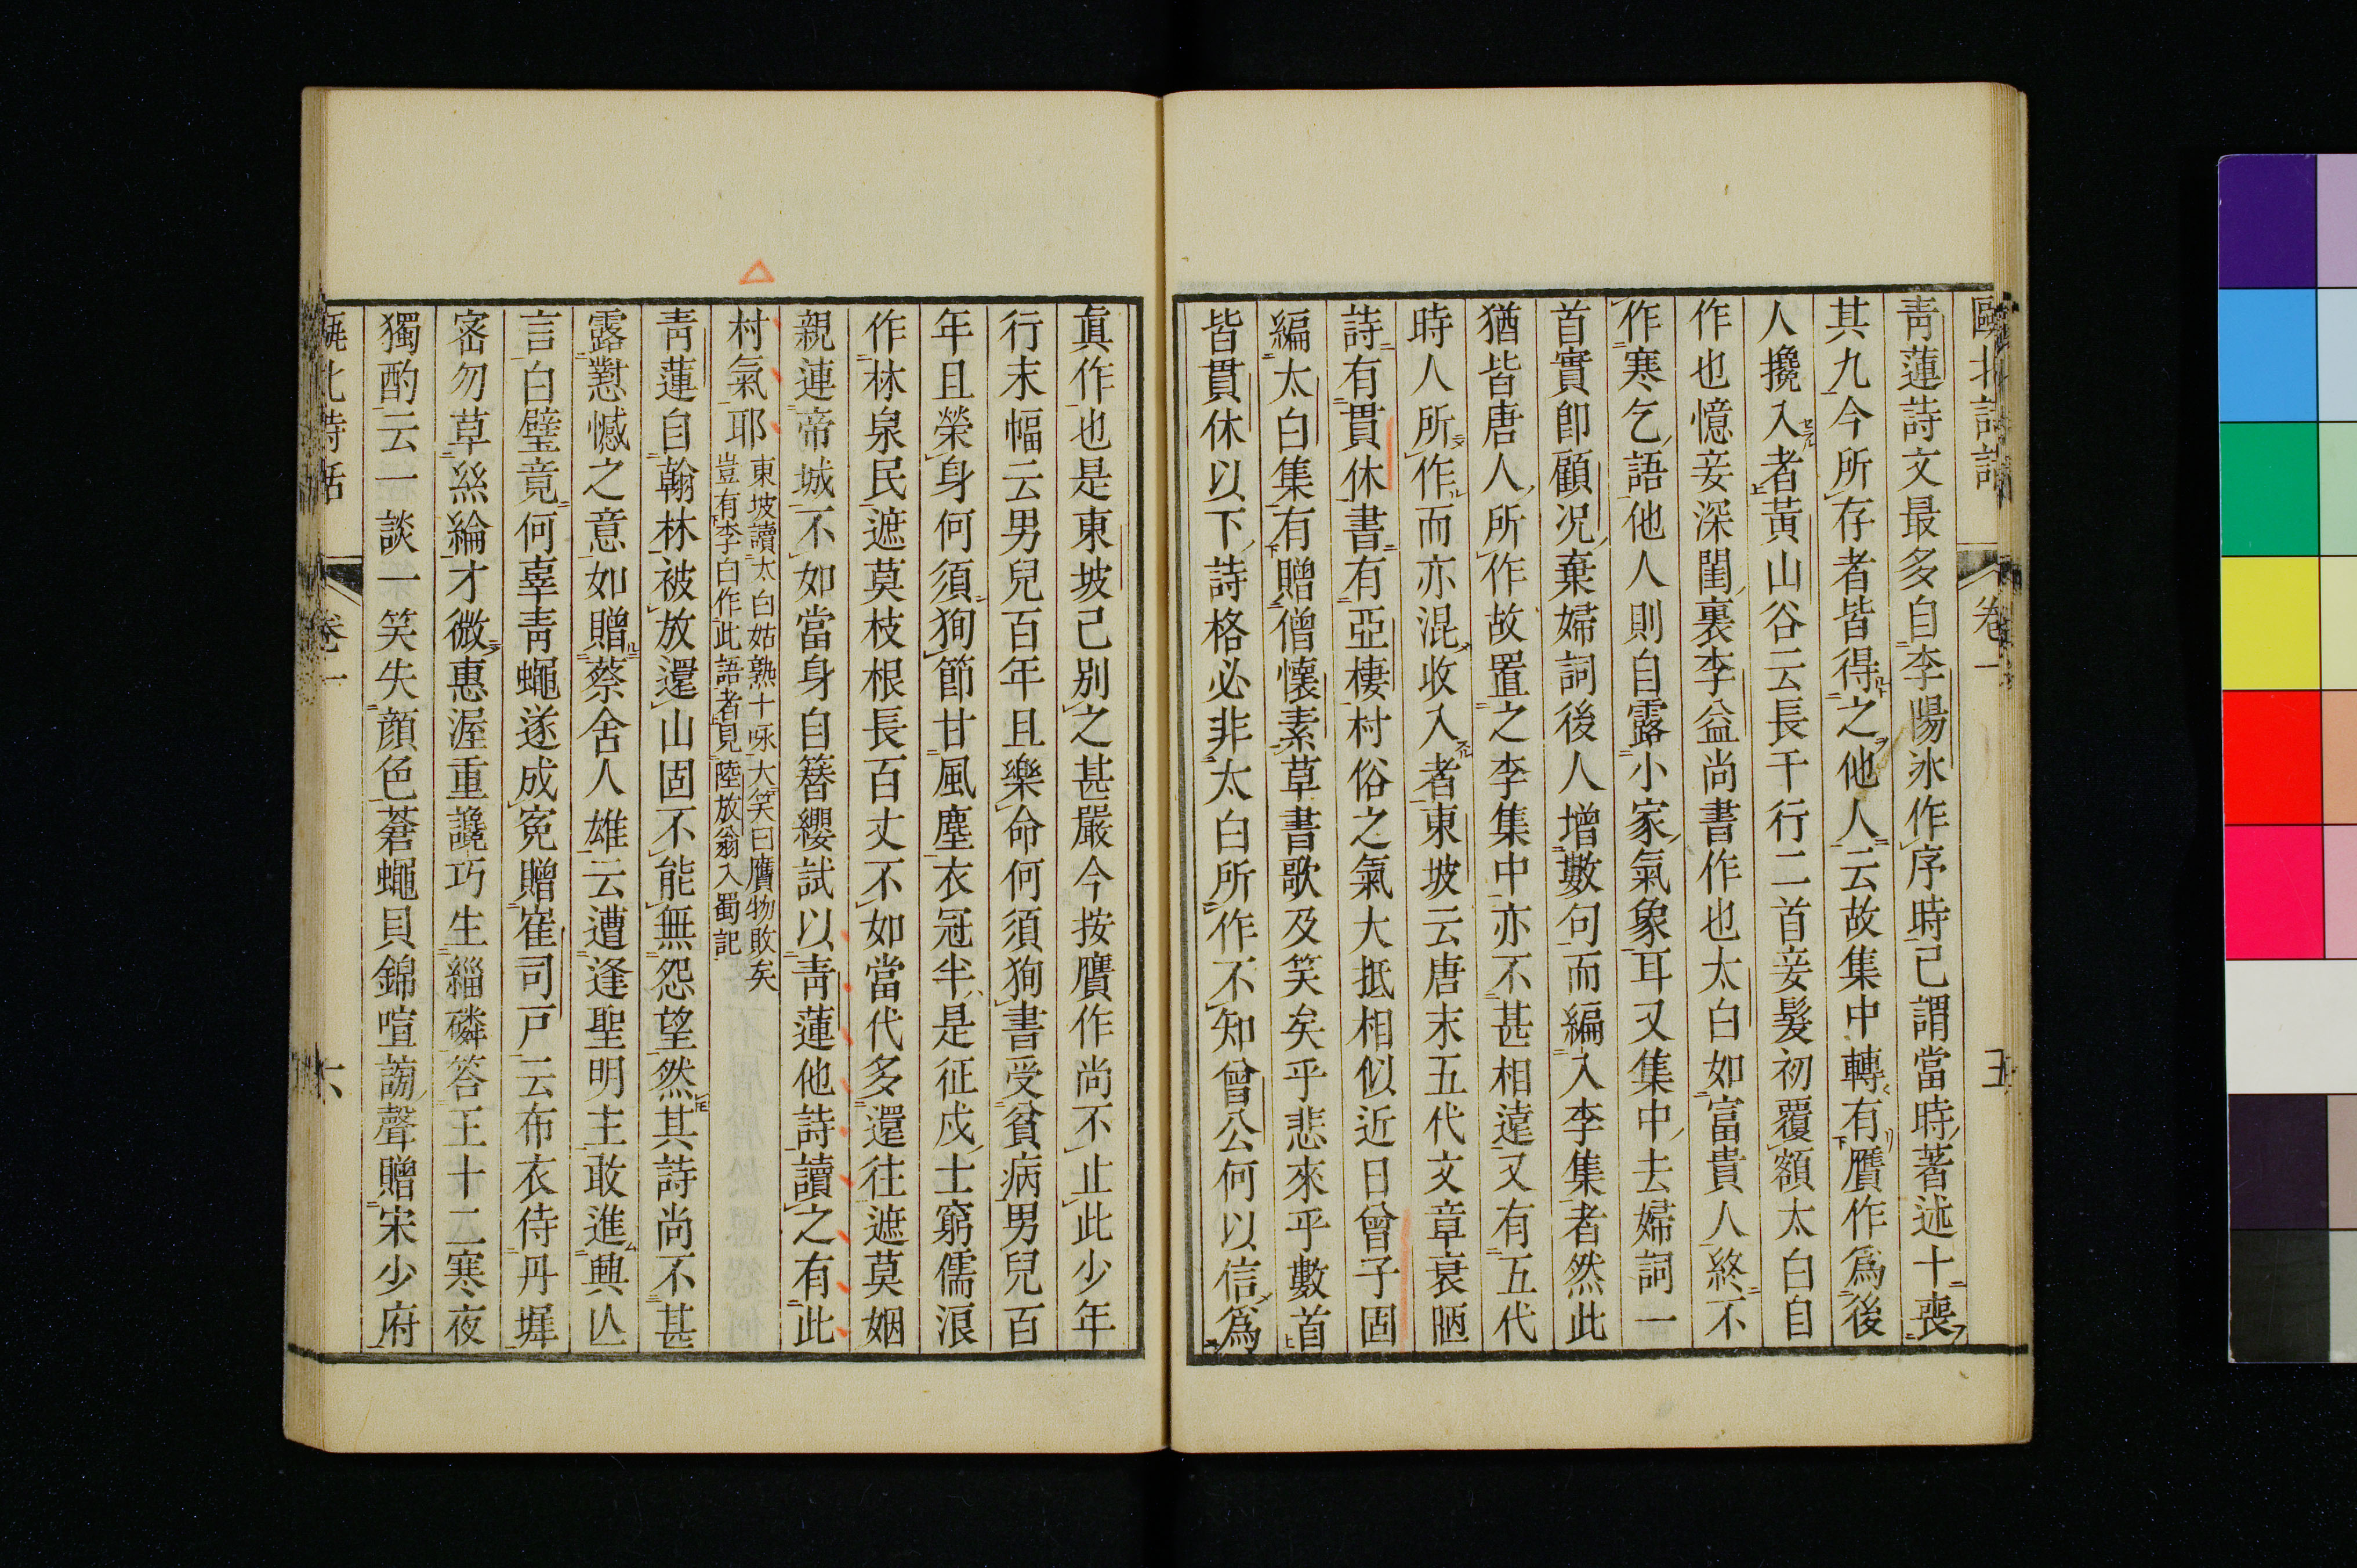 甌北詩話 卷一 五
靑蓮詩文最多自李陽氷作序時已謂當時著述十喪
其九今所存者皆得之他人云故集中轉有贋作爲後
人攙入者黃山谷云長干行二首妾髮初覆額太白自
作也憶妾深閨裏李益尚書作也太白如富貴人終不
作寒乞語他人則自露小家氣象耳又集中去婦詞一
首實卽顧况棄婦詞後人增數句而編入李集者然此
猶皆唐人所作故置之李集中亦不甚相遠又有五代
時人所作而亦混收入者東坡云唐末五代文章衰陋
詩有貫休書有亞棲村俗之氣大抵相似近日曾子固
編太白集有贈僧懷素草書歌及笑矣乎悲來乎數首
皆貫休以下詩格必非太白所作不知曾公何以信爲
眞作也是東坡已別之甚嚴今按贋作尚不止此少年
行末幅云男兒百年且樂命何須狥書受貧病男兒百
年且榮身何須狥節甘風塵衣冠半是征戍士窮儒浪
作林泉民遮莫枝根長百丈不如當代多還往遮莫姻
親連帝城不如當身自簪纓試以靑蓮他詩讀之有此
村氣耶 東坡讀太白姑熟十咏大笑曰贋物敗矣
豈有李白作此語者見陸放翁入蜀記
靑蓮自翰林被放還山固不能無怨望然其詩尚不甚
露懟憾之意如贈蔡舍人雄云遭逢聖明主敢進興亾
言白璧竟何辜靑蠅遂成寃贈崔司戸云布衣侍丹墀
宻勿草絲綸才微惠渥重讒巧生緇磷答王十二寒夜
獨酌云一談一笑失顔色蒼蠅貝錦喧謗聲贈宋少府
甌北詩話 卷一 六